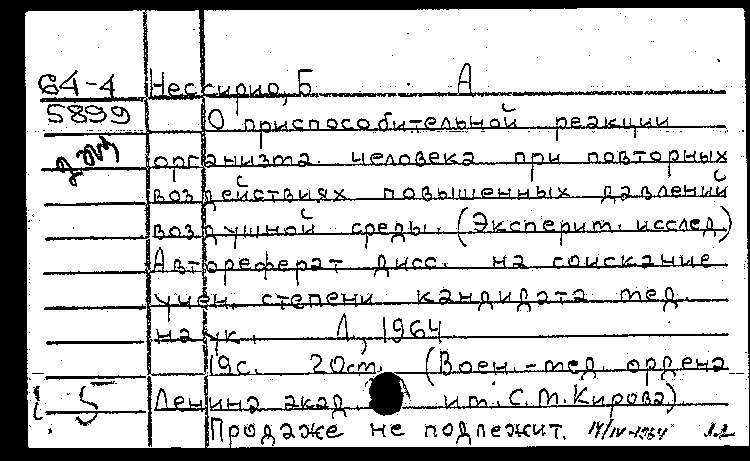 64-4 Нессирио, Б А
5899
О приспособительной реакции
2 экз
организма человека при повторных
воздействиях повышенных давлений
воздушной среды. (Эксперит. исслед)
Автореферат дисс. на соискание
учен. степени кандидата мед.
наук. Л, 1964
19с. 20см. (Воен.-мед ордена
Ленина акад им. С.М.Кирова)
5
Продаже не подлежит. 14/IV-1964